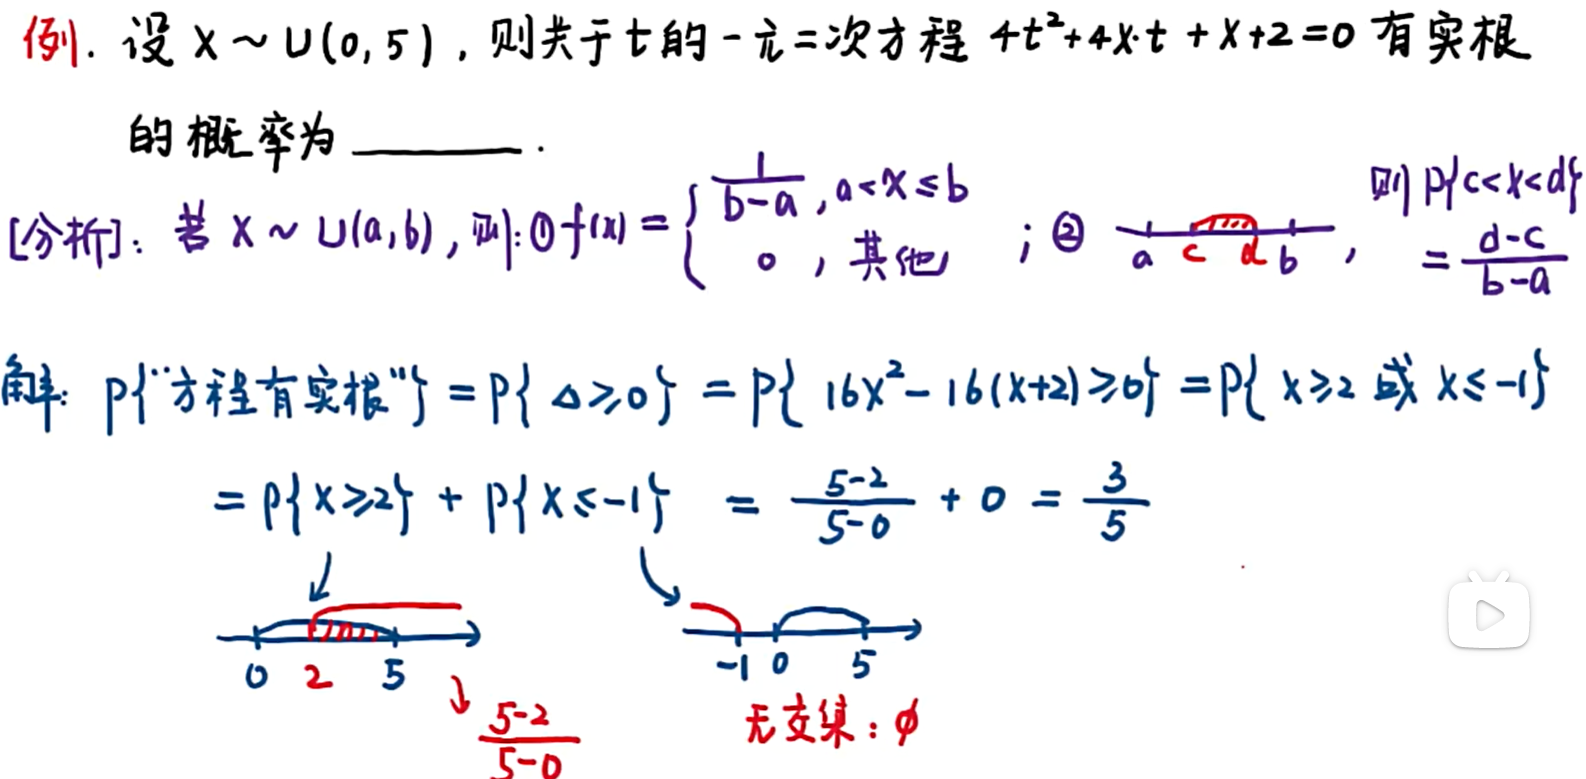 例. 设 X ~ U(0,5), 则关于t的一元二次方程 4t²+4X·t+X+2=0 有实根
的概率为 ________.
[分析]: 若 X ~ U(a,b), 则: ① f(x) = { 1/(b-a), a<x≤b ; 0, 其他 ; ② a c d b, 则 P{c<X<d} = (d-c)/(b-a)
解: P{"方程有实根"} = P{ Δ≥0} = P{ 16X²-16(X+2)≥0} = P{ X≥2 或 X≤-1}
= P{X≥2} + P{X≤-1} = (5-2)/(5-0) + 0 = 3/5
0 2 5 -1 0 5
(5-2)/(5-0) 无交集: ∅